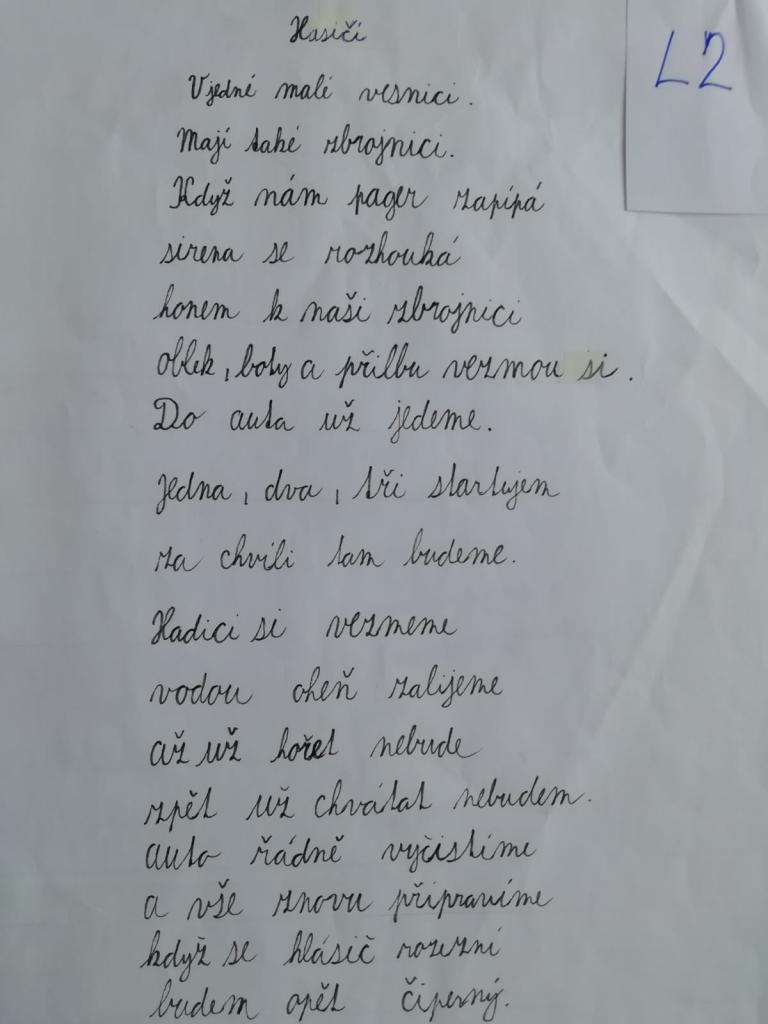 Hasiči
L2
Vjedné malé vesnici.
Mají také zbrojnici.
Když nám pager zapípá
sirena se rozhouká
honem k naši zbrojnici
oblek, boty a přilbu vezmou si.
Do auta už jedeme.
Jedna, dva, tři startujem
za chvíli tam budeme.
Hadici si vezmeme
vodou oheň zalijeme
až už hořet nebude
zpět už chvátat nebudem.
auto řádně vyčistíme
a vše znovu připravíme
když se hlásič rozezní
budem opět čiperný.